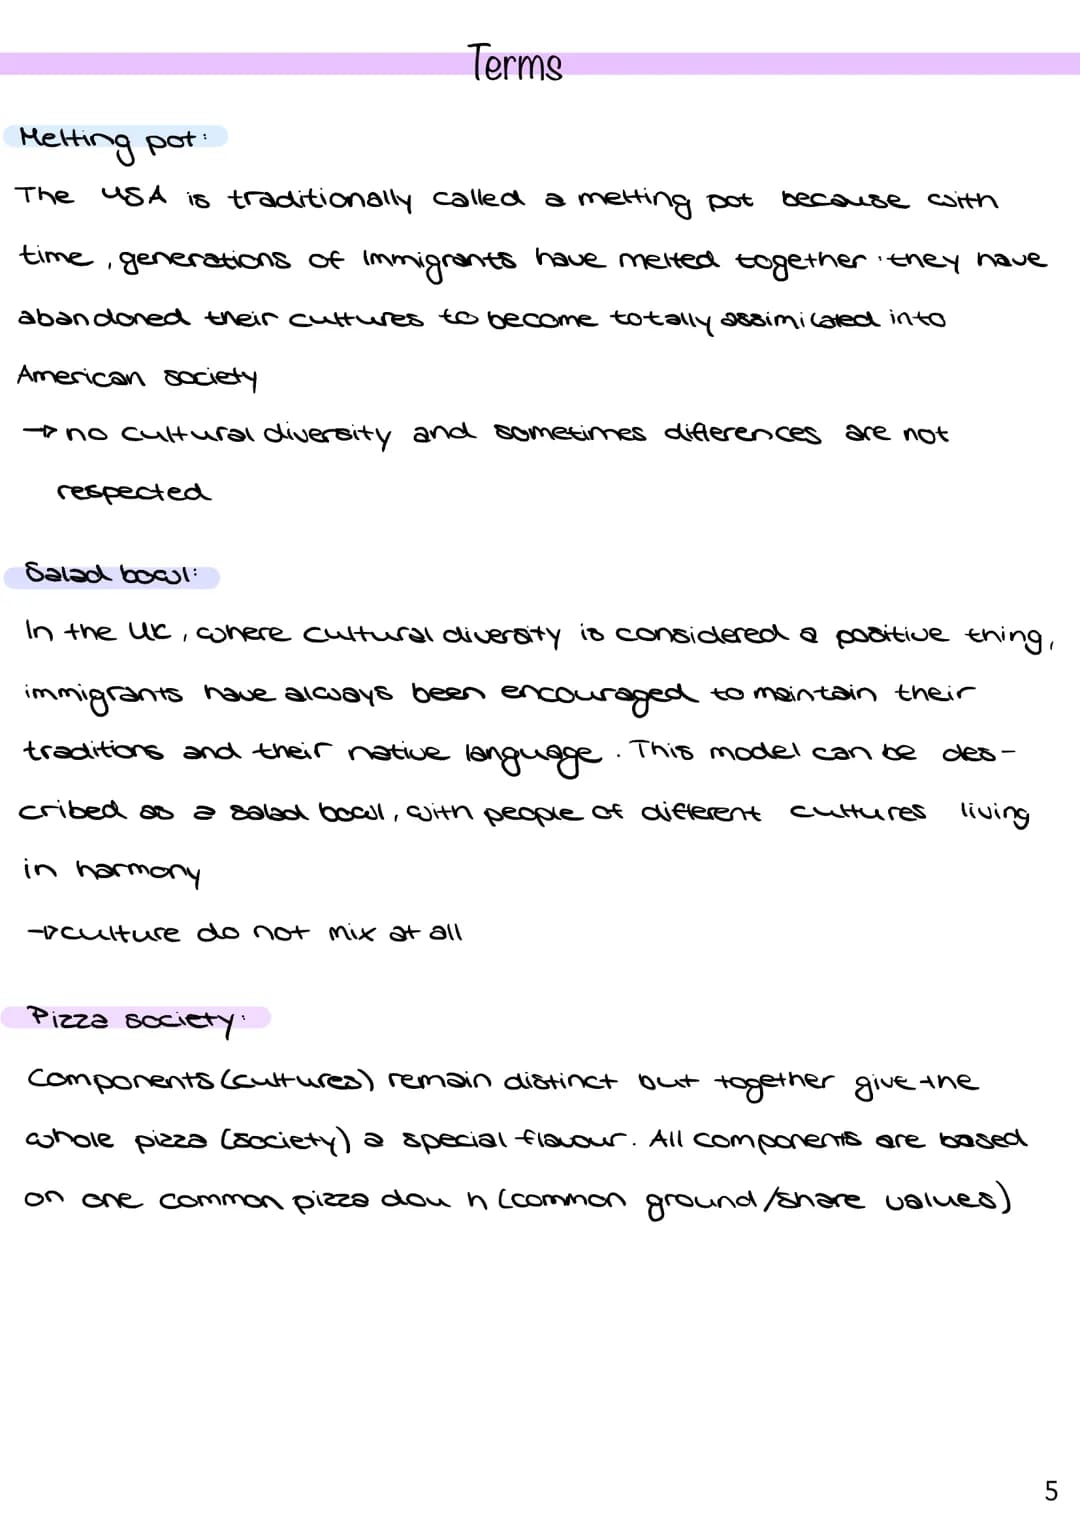 Terms
Melting pot:
The USA is traditionally called a melting pot because with
time, generations of immigrants have melted together: they have
abandoned their cultures to become totally assimilated into
American society
→ no cultural diversity and sometimes differences are not
respected
Salad bowl:
In the UK, where cultural diversity is considered a positive thing,
immigrants have always been encouraged to maintain their
traditions and their native language. This model can be des-
cribed as a salad bowl, with people of different cultures living
in harmony
→ culture do not mix at all
Pizza society:
Components (cultures) remain distinct but together give the
whole pizza (society) a special flavour. All components are based
on one common pizza dou h (common ground/share values)
5